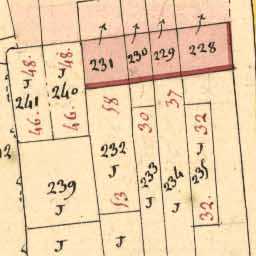 231
230
229
228
48.
48.
J
J
241
240
46.
46.
58
37
30
32
232
J
J
233
234
235
J
J
53
32.
239
J
J
J